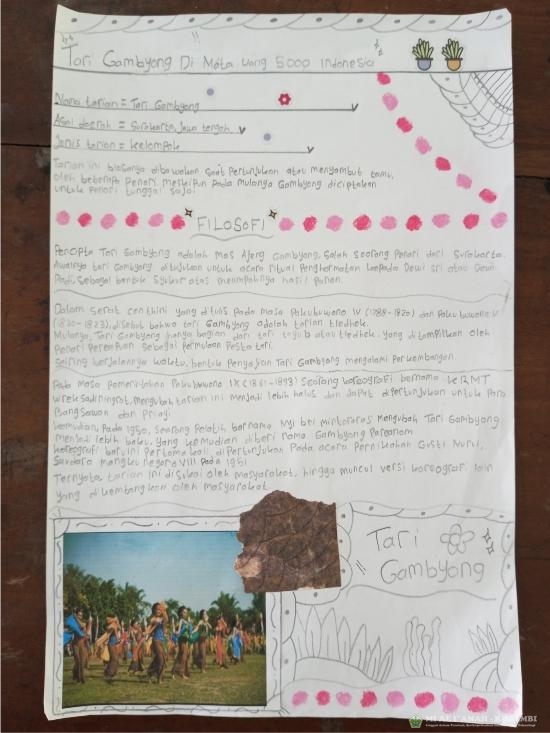 Tari Gambyong Di Mata Uang 5000 Indonesia
Nama tarian = Tari Gambyong
Asal daerah = Surakarta, Jawa tengah
Jenis tarian = kelompok
Tarian ini biasanya dibawakan saat Pertunjukan atau menyambut tamu,
oleh beberapa Penari, meskipun Pada mulanya Gambyong diciptakan
untuk Penari tunggal saja.
FILOSOFI
Pencipta Tari Gambyong adalah Mas Ajeng Gambyong, Salah Seorang Penari dari Surakarta.
Awalnya tari Gambyong ditujukan untuk acara ritual Penghormatan kepada Dewi Sri atau Dewi
Padi, Sebagai bentuk Syukur atas melimpahnya hasil Panen.
Dalam Serat Centhini yang ditulis Pada masa Pakubuwono IV (1788-1820) dan Pakubuwono V
(1820-1823), disebut bahwa tari Gambyong adalah tarian tledhek.
Mulanya, Tari Gambyong hanya bagian dari tari tayub atau tledhek. yang ditampilkan oleh
Penari Perempuan Sebagai Permulaan Pesta tari.
Seiring berjalannya waktu, bentuk Penyajian Tari Gambyong mengalami Perkembangan.
Pada Masa Pemerintahan Pakubuwono IX (1861-1893) Seorang koreografi bernama K.R.M.T
Wreksadiningrat, mengubah tarian ini menjadi lebih halus dan dapat dipertunjukan untuk Para
Bangsawan dan Priayi
kemudian, Pada 1950, Seorang Pelatih bernama Nyi bei mintoraras mengubah Tari Gambyong
menjadi lebih baku, yang kemudian diberi nama Gambyong Pareanom
koreografi baru ini Pertama kali, di Pertunjukan Pada acara Pernikahan Gusti Nurul,
Saudara mangkunegara VIII Pada 1951
Ternyata, tarian ini disukai oleh masyarakat, hingga muncul versi koreografi lain
yang dikembangkan oleh masyarakat
Tari
Gambyong